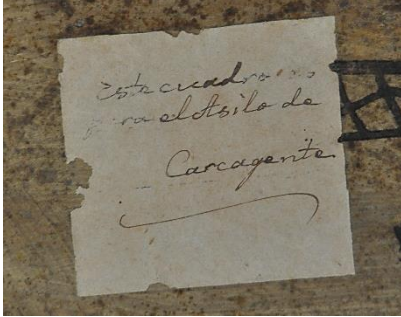 Este cuadro es
para el Asilo de
Carcagente